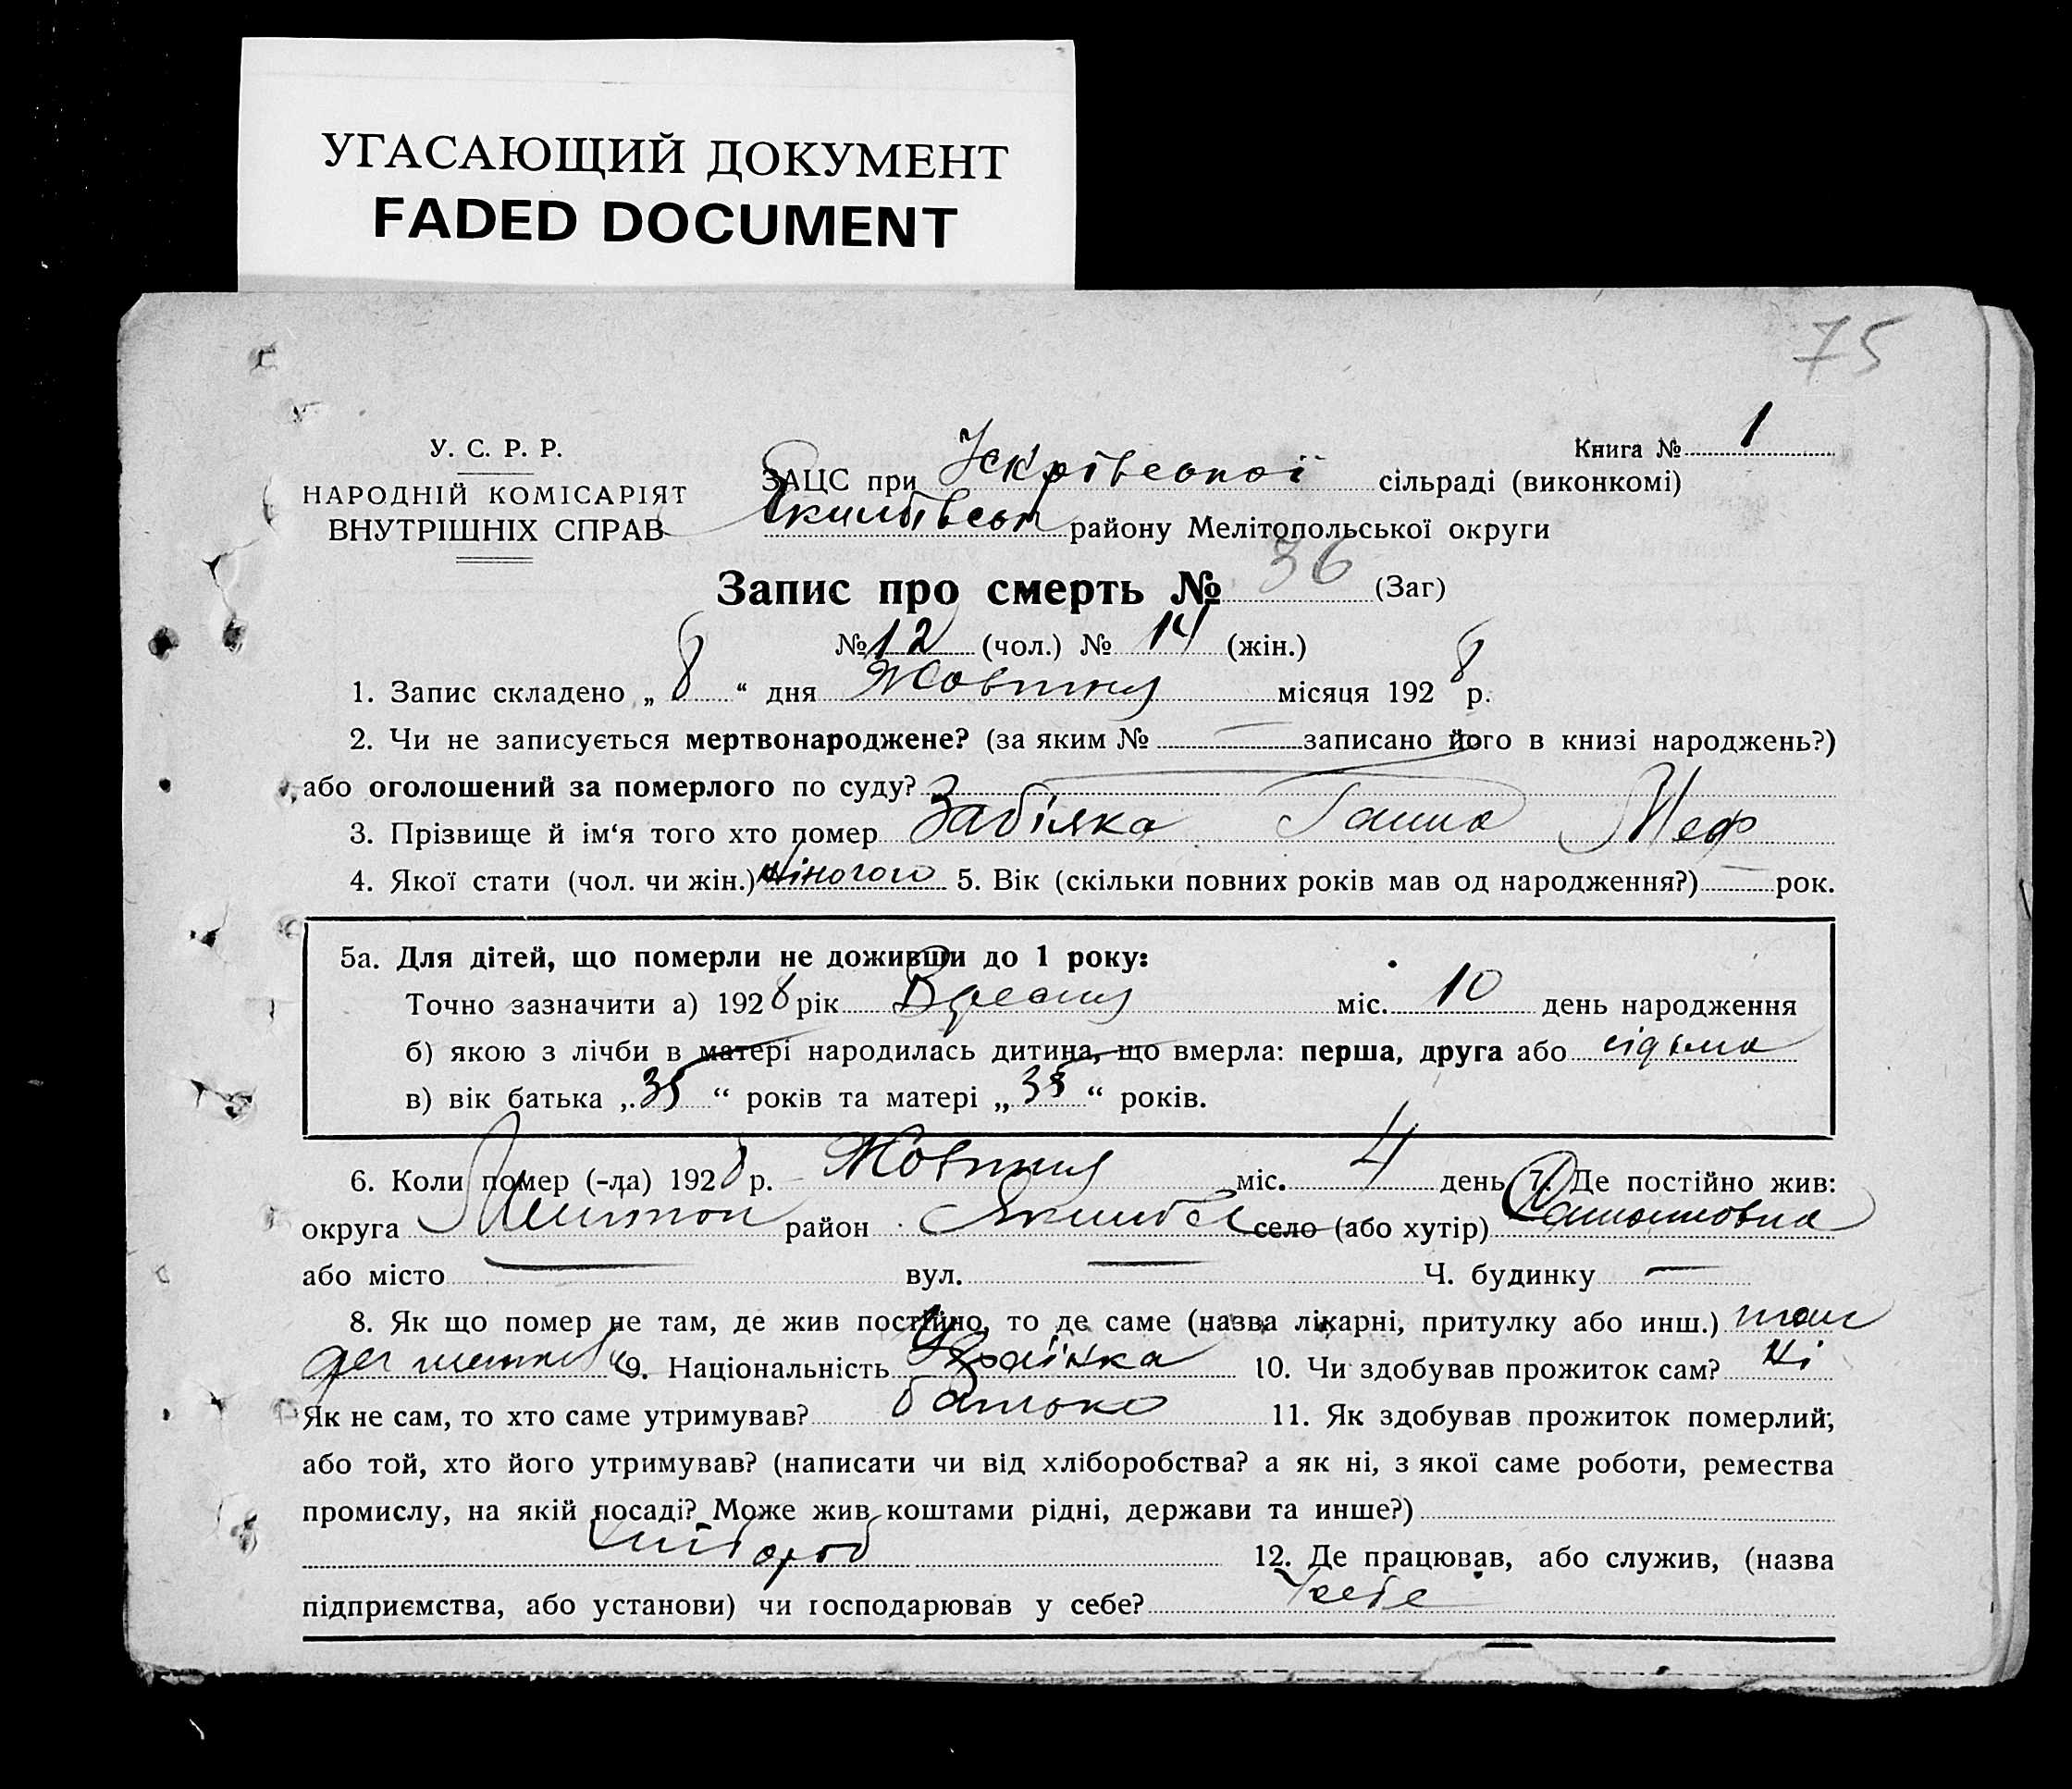 УГАСАЮЩИЙ ДОКУМЕНТ
FADED DOCUMENT
75
У. С. Р. Р.
НАРОДНІЙ КОМІСАРІЯТ
ВНУТРІШНІХ СПРАВ
Книга № 1
ЗАЦС при сільраді (виконкомі)
району Мелітопольської округи
Запис про смерть № 36 (Заг)
№ 12 (чол.) № 14 (жін.)
1. Запис складено „ 8 “ дня Жовтня місяця 192 8 р.
2. Чи не записується мертвонароджене? (за яким № — записано його в книзі народжень?)
або оголошений за померлого по суду?
3. Прізвище й ім‘я того хто помер Забіяка Ганна Меф
4. Якої стати (чол. чи жін.) жіночого 5. Вік (скільки повних років мав од народження?) — рок.
5а. Для дітей, що померли не доживши до 1 року:
Точно зазначити а) 192 8 рік Вресня міс. 10 день народження
б) якою з лічби в матері народилась дитина, що вмерла: перша, друга або сідьма
в) вік батька „ 35 “ років та матері „ “ років.
6. Коли помер (-ла) 192 8 р. Жовтня міс. 4 день 7. Де постійно жив:
округа район село (або хутір)
або місто — вул. — Ч. будинку —
8. Як що помер не там, де жив постійно, то де саме (назва лікарні, притулку або инш.) там
де 9. Національність Украінка 10. Чи здобував прожиток сам? Ні
Як не сам, то хто саме утримував? батько 11. Як здобував прожиток померлий;
або той, хто його утримував? (написати чи від хліборобства? а як ні, з якої саме роботи, ремества
промислу, на якій посаді? Може жив коштами рідні, держави та инше?)
хлібороб 12. Де працював, або служив, (назва
підприємства, або установи) чи господарював у себе? У себе